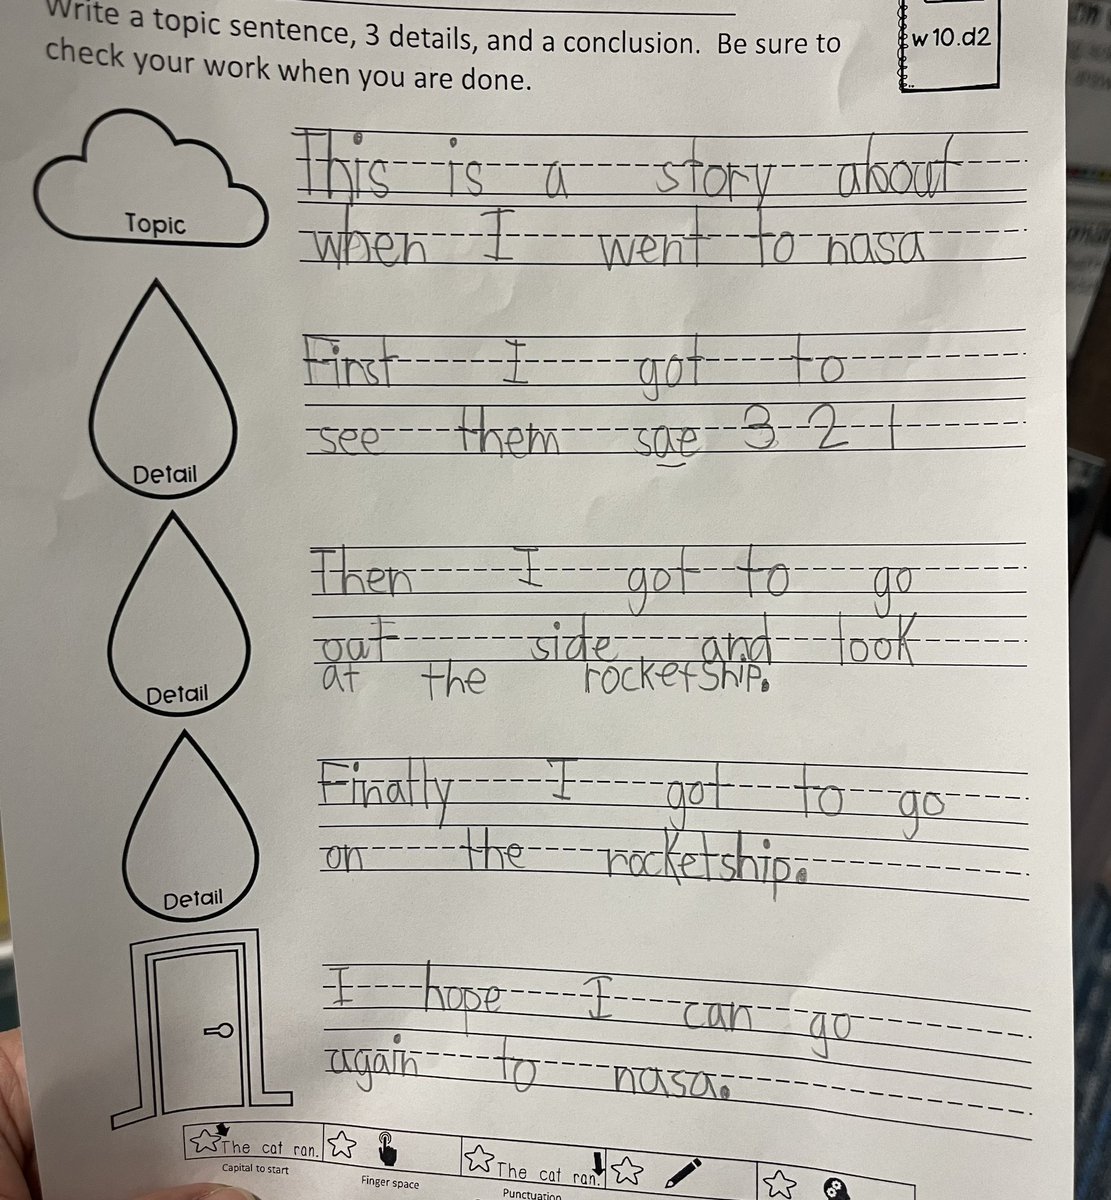 Write a topic sentence, 3 details, and a conclusion. Be sure to
check your work when you are done.
w10.d2
Topic
This is a story about
when I went to nasa
Detail
First I got to
see them sae 3 2 1
Detail
Then I got to go
oat side and look
at the rocketship.
Detail
Finally I got to go
on the rocketship.
I hope I can go
again to nasa.
The cat ran.
Capital to start
Finger space
The cat ran.
Punctuation